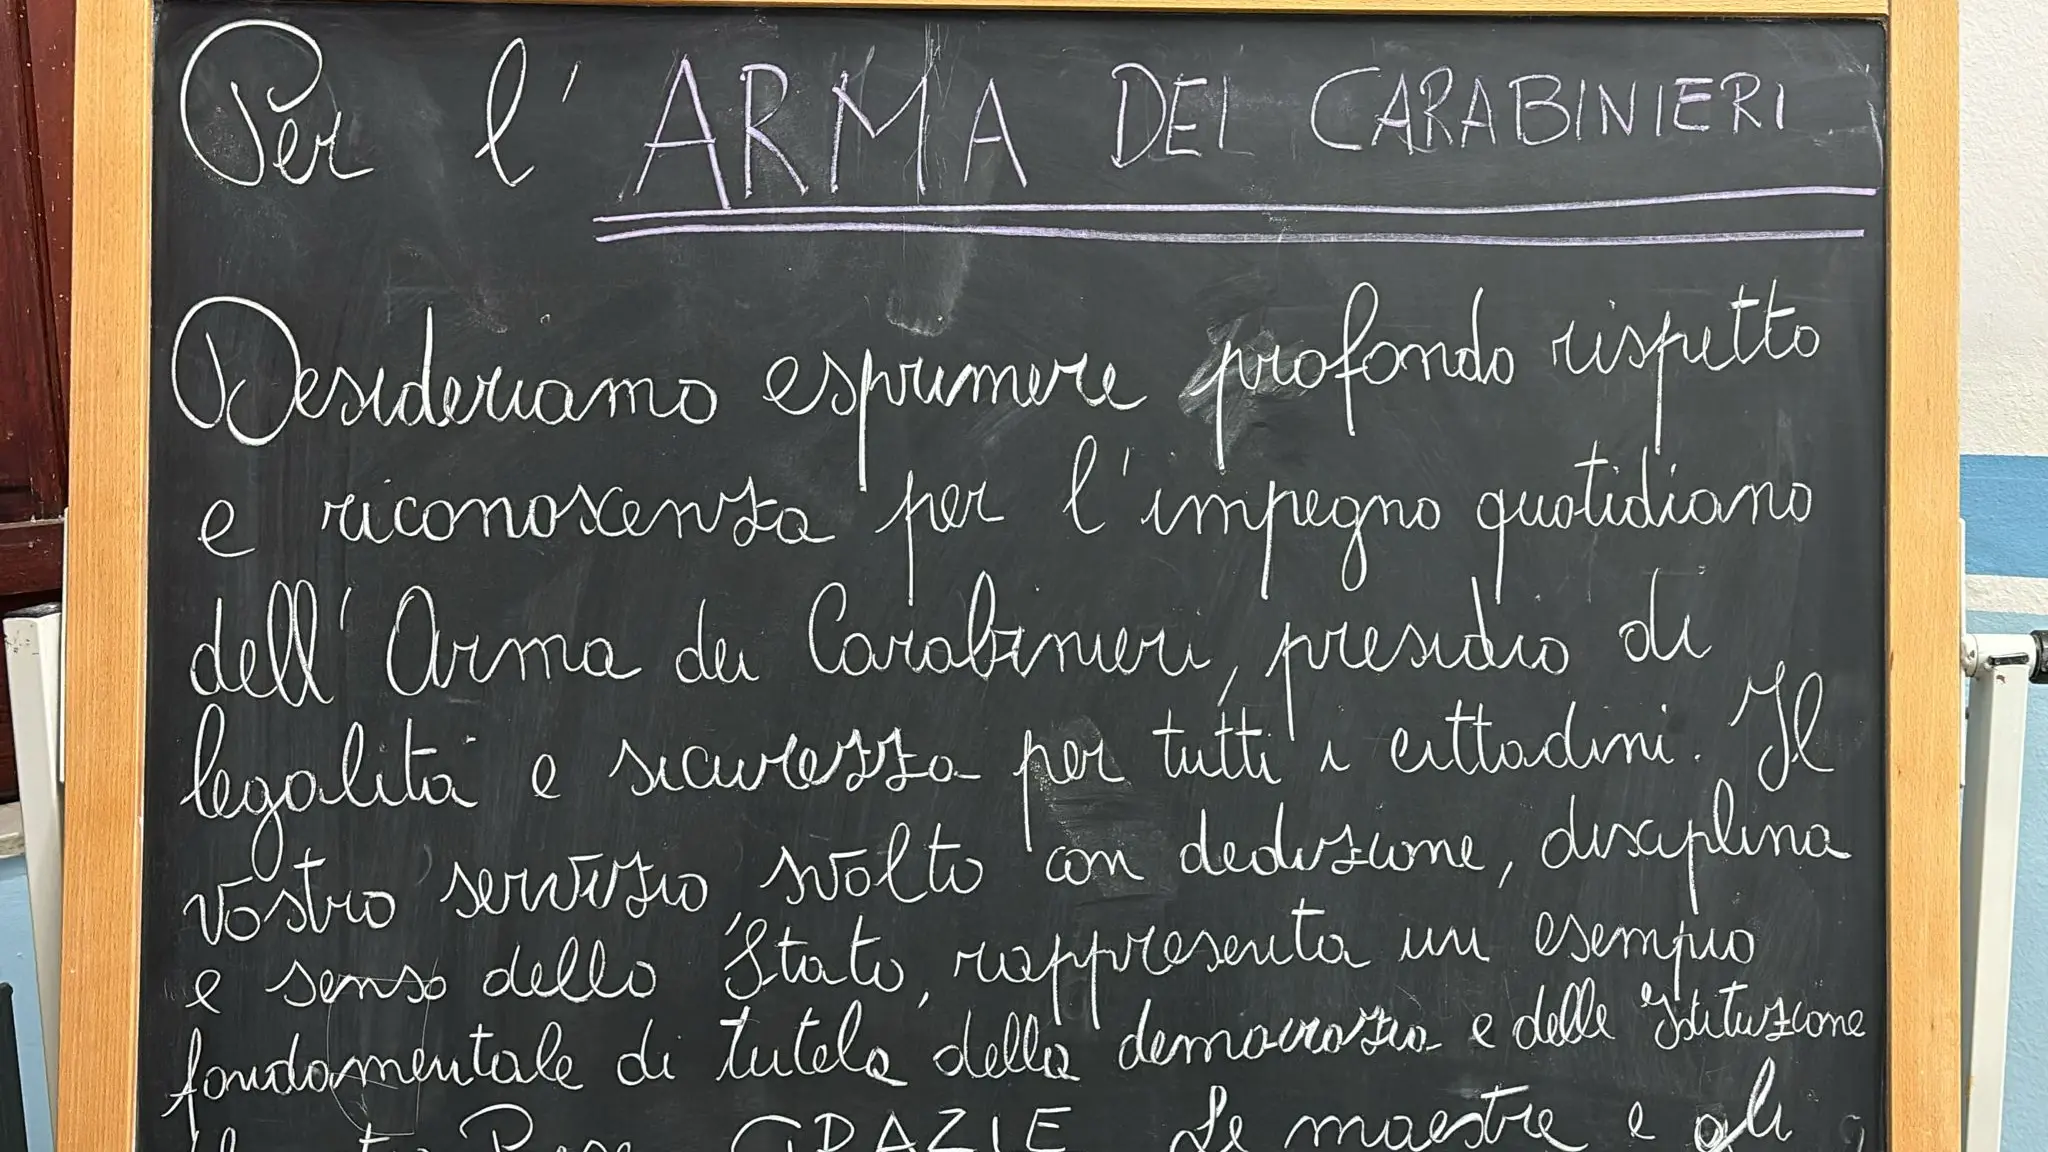 Per l'ARMA DEI CARABINIERI
Desideriamo esprimere profondo rispetto
e riconoscenza per l'impegno quotidiano
dell'Arma dei Carabinieri, presidio di
legalità e sicurezza per tutti i cittadini. Il
vostro servizio, svolto con dedizione, disciplina
e senso dello Stato, rappresenta un esempio
fondamentale di tutela della democrazia e delle Istituzione
Paese. GRAZIE Le maestre e gli